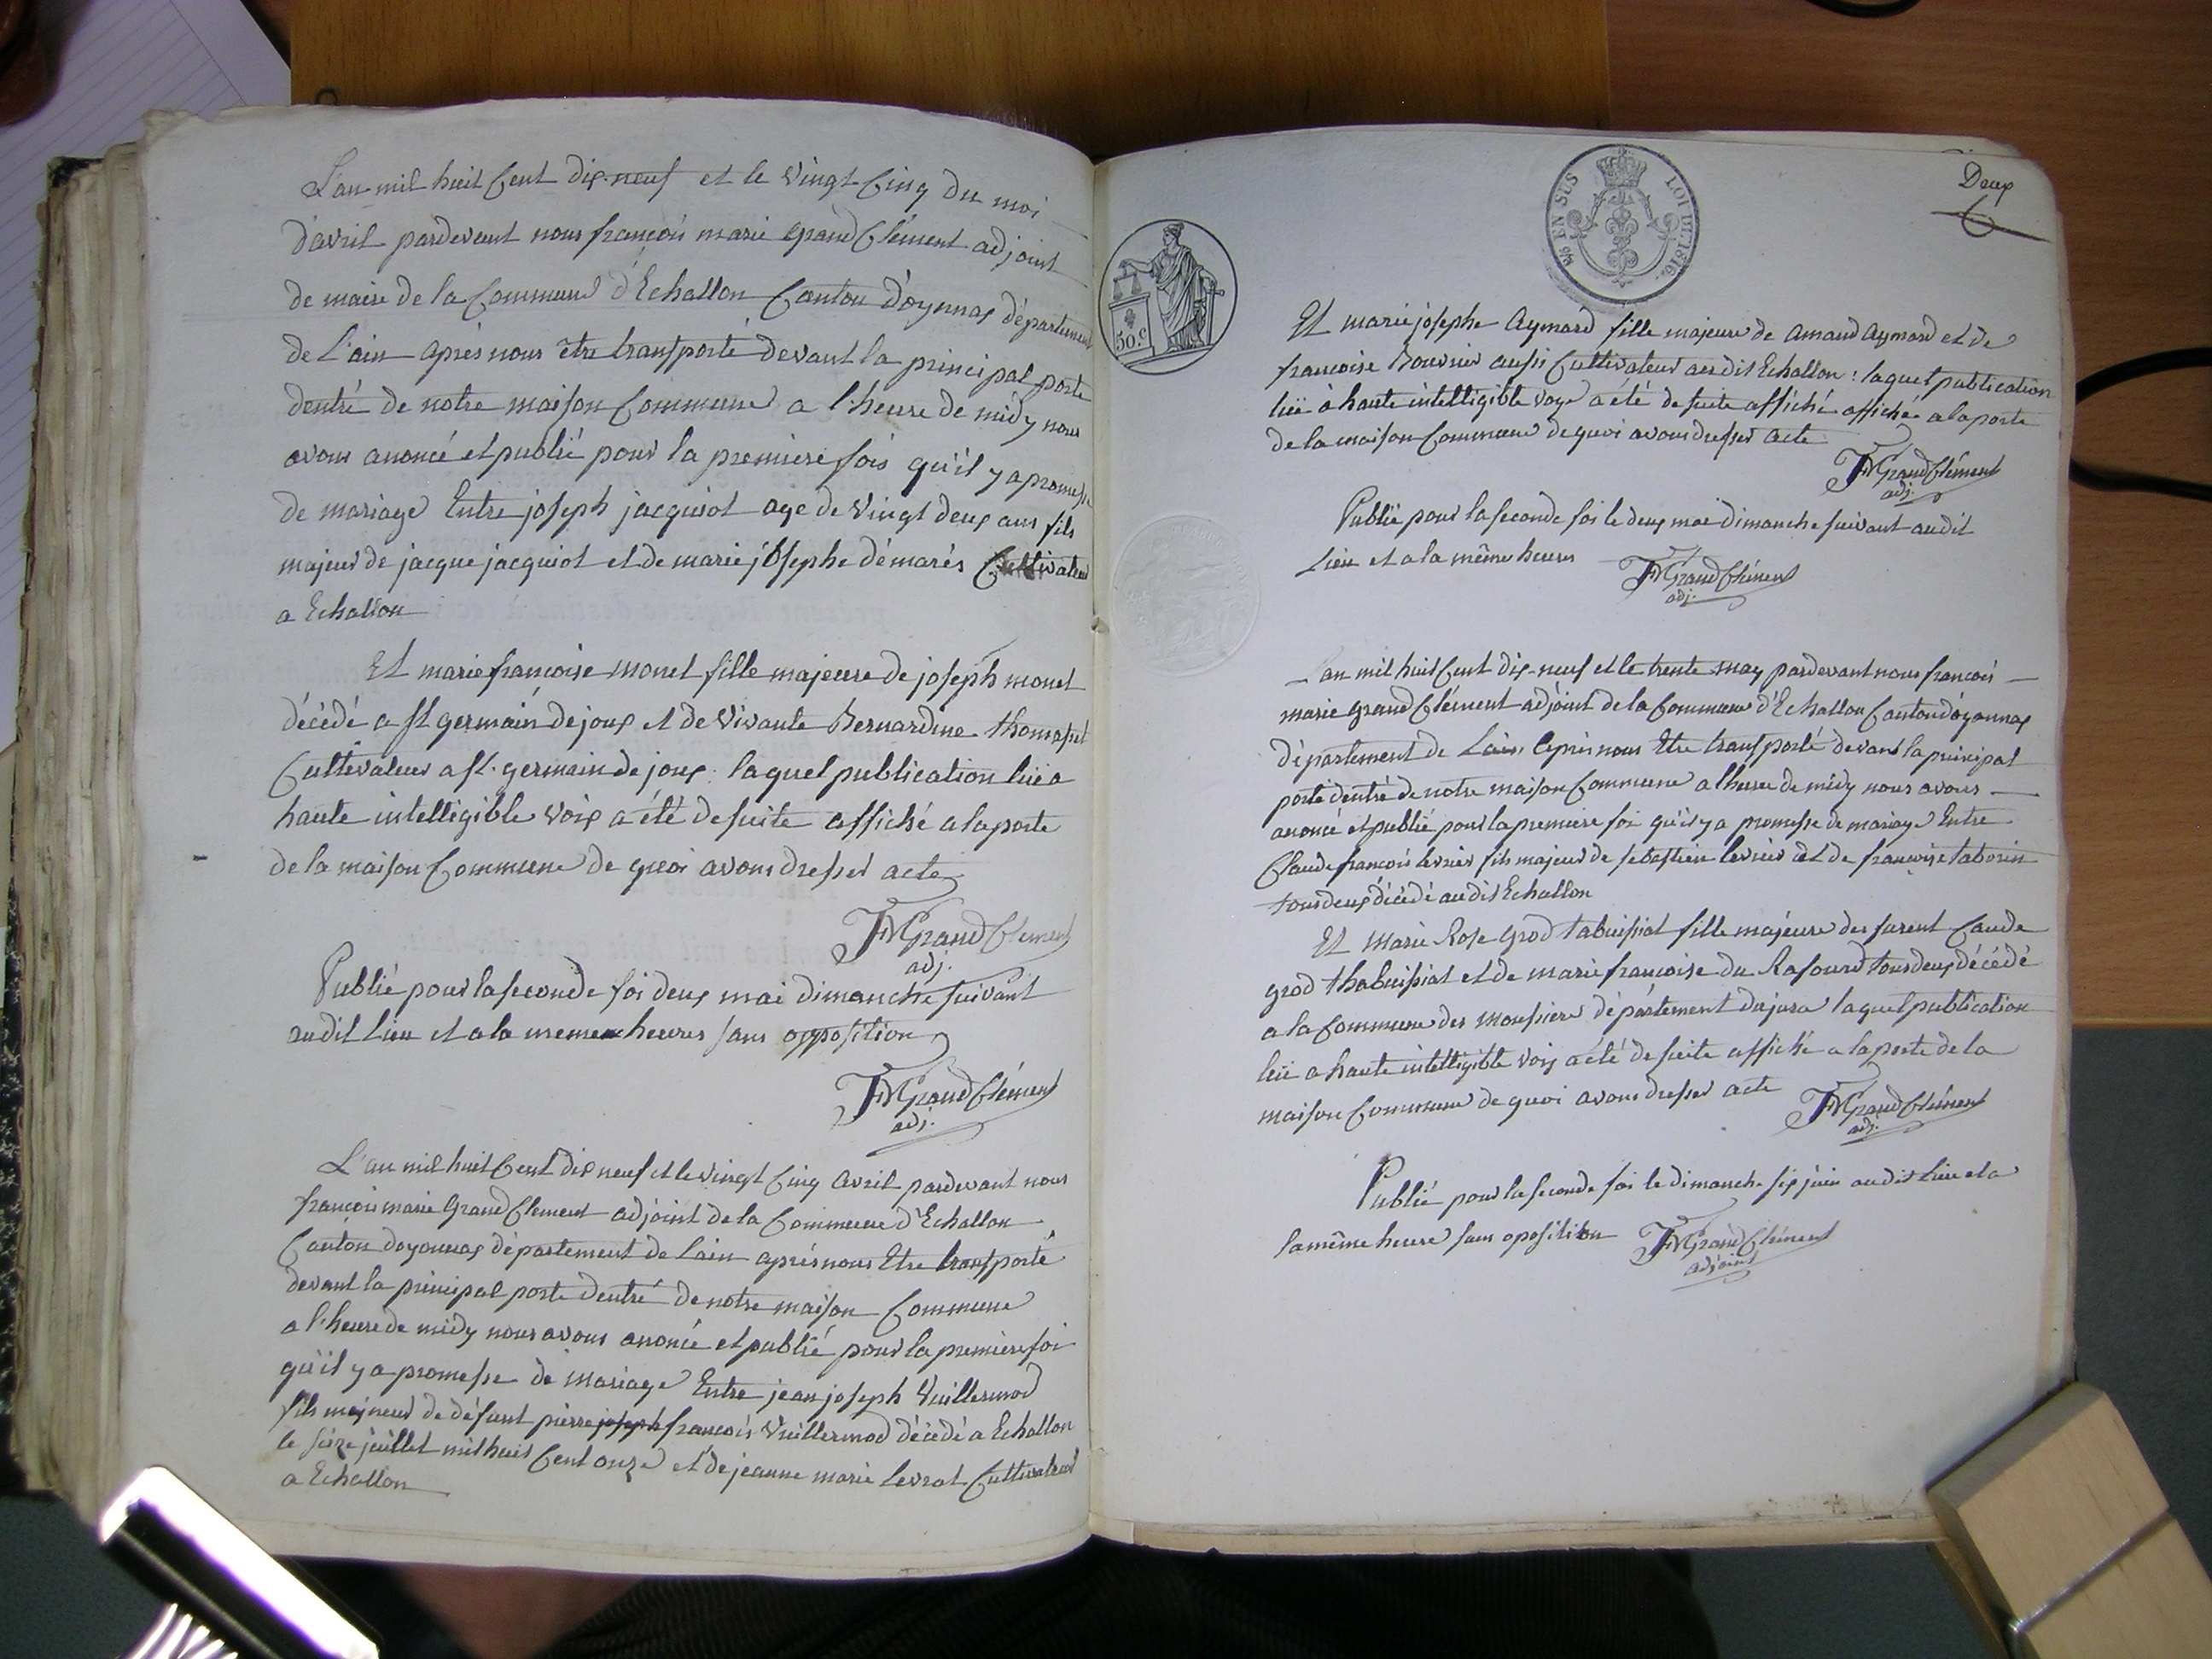 L'an mil huit Cent dix-neuf et le vingt Cinq du moi
d'avril pardevant nous françois marie Grand Clément adjoint
de maire de la Commune d'Echallon Canton d'oyonnax département
de L'ain après nous être transporté devant la principal porte
dentré de notre maison Commune a l'heure de midy nous
avons anoncé et publié pour la première fois qu'il y a promesse
de mariage Entre joseph jacquiot age de vingt deux ans fils
majeur de jacque jacquiot et de marie josephe démarés Cultivateur
a Echallon
Et marie françoise monet fille majeure de joseph monet
décédé a St germain de joux et de vivante Bernardine thomasset
Cultivateur a St. germain de joux : laquel publication luë a
haute intelligible voix a été de suite affiché a la porte
de la maison Commune de quoi avons dresser acte
FMGrandClément
adj.
Publié pour la seconde foi deux mai dimanche suivant
audit Lieu et a la meme heures sans opposition
FMGrandClément
adj.
L'an mil huit Cent dix neuf et le vingt Cinq avril pardevant nous
françois marie Grand Clement adjoint de la Commune d'Echallon
Canton doyonnax département de Lain après nous Etre transporté
devant la principal porte dentré de notre maison Commune
a l'heure de midy nous avons anoncé et publié pour la première foi
qu'il y a promesse de mariage Entre jean joseph Vuillermod
fils majneur de défunt pierre joseph françois Vuillermod décédé a Echallon
le seize juillet mil huit Cent onze et de jeanne marie levrat Cultivateur
a Echallon
Deux
EN SUS
LOI DE 1816.
50.C
Et marie josephe Aymard fille majeure de amand Aymard et de
françoise Bouvier aussi Cultivateur audit Echallon : laquel publication
luë à haute intelligible voye a été de suite affiché affiché a la porte
de la maison Commune de quoi avons dresser acte
FMGrandClément
adj.
Publié pour la seconde foi le deux mai dimanche suivant audit
Lieu et a la même heures
FMGrandClément
adj.
L'an mil huit Cent dix-neuf et le trente may pardevant nous françois
marie grand Clément adjoint de la Commune d'Echallon Canton d'oyonnax
département de Lain après nous Etre transporté devant la principal
porte dentré de notre maison Commune a lheure de midy nous avons
anoncé et publié pour la première foi qu'il y a promesse de mariage Entre
Claude françois levrier fils majeur de sebastien levrier et de françoise taborin
tous deux décédé audit Echallon
Et Marie Rose grod tabuissiat fille majeure des furent Caude
grod thabuissiat et de marie françoise du Rafourd tous deux décédé
a la Commune des moussiere département du jura laquel publication
luë a haute intelligible voix a été de suite affiché a la porte de la
maison Commune de quoi avons dresser acte
FMGrandClément
adj.
Publié pour la seconde foi le dimanche six juin audit Lieu et a
la même heure sans oposition
FMGrandClément
adjoint